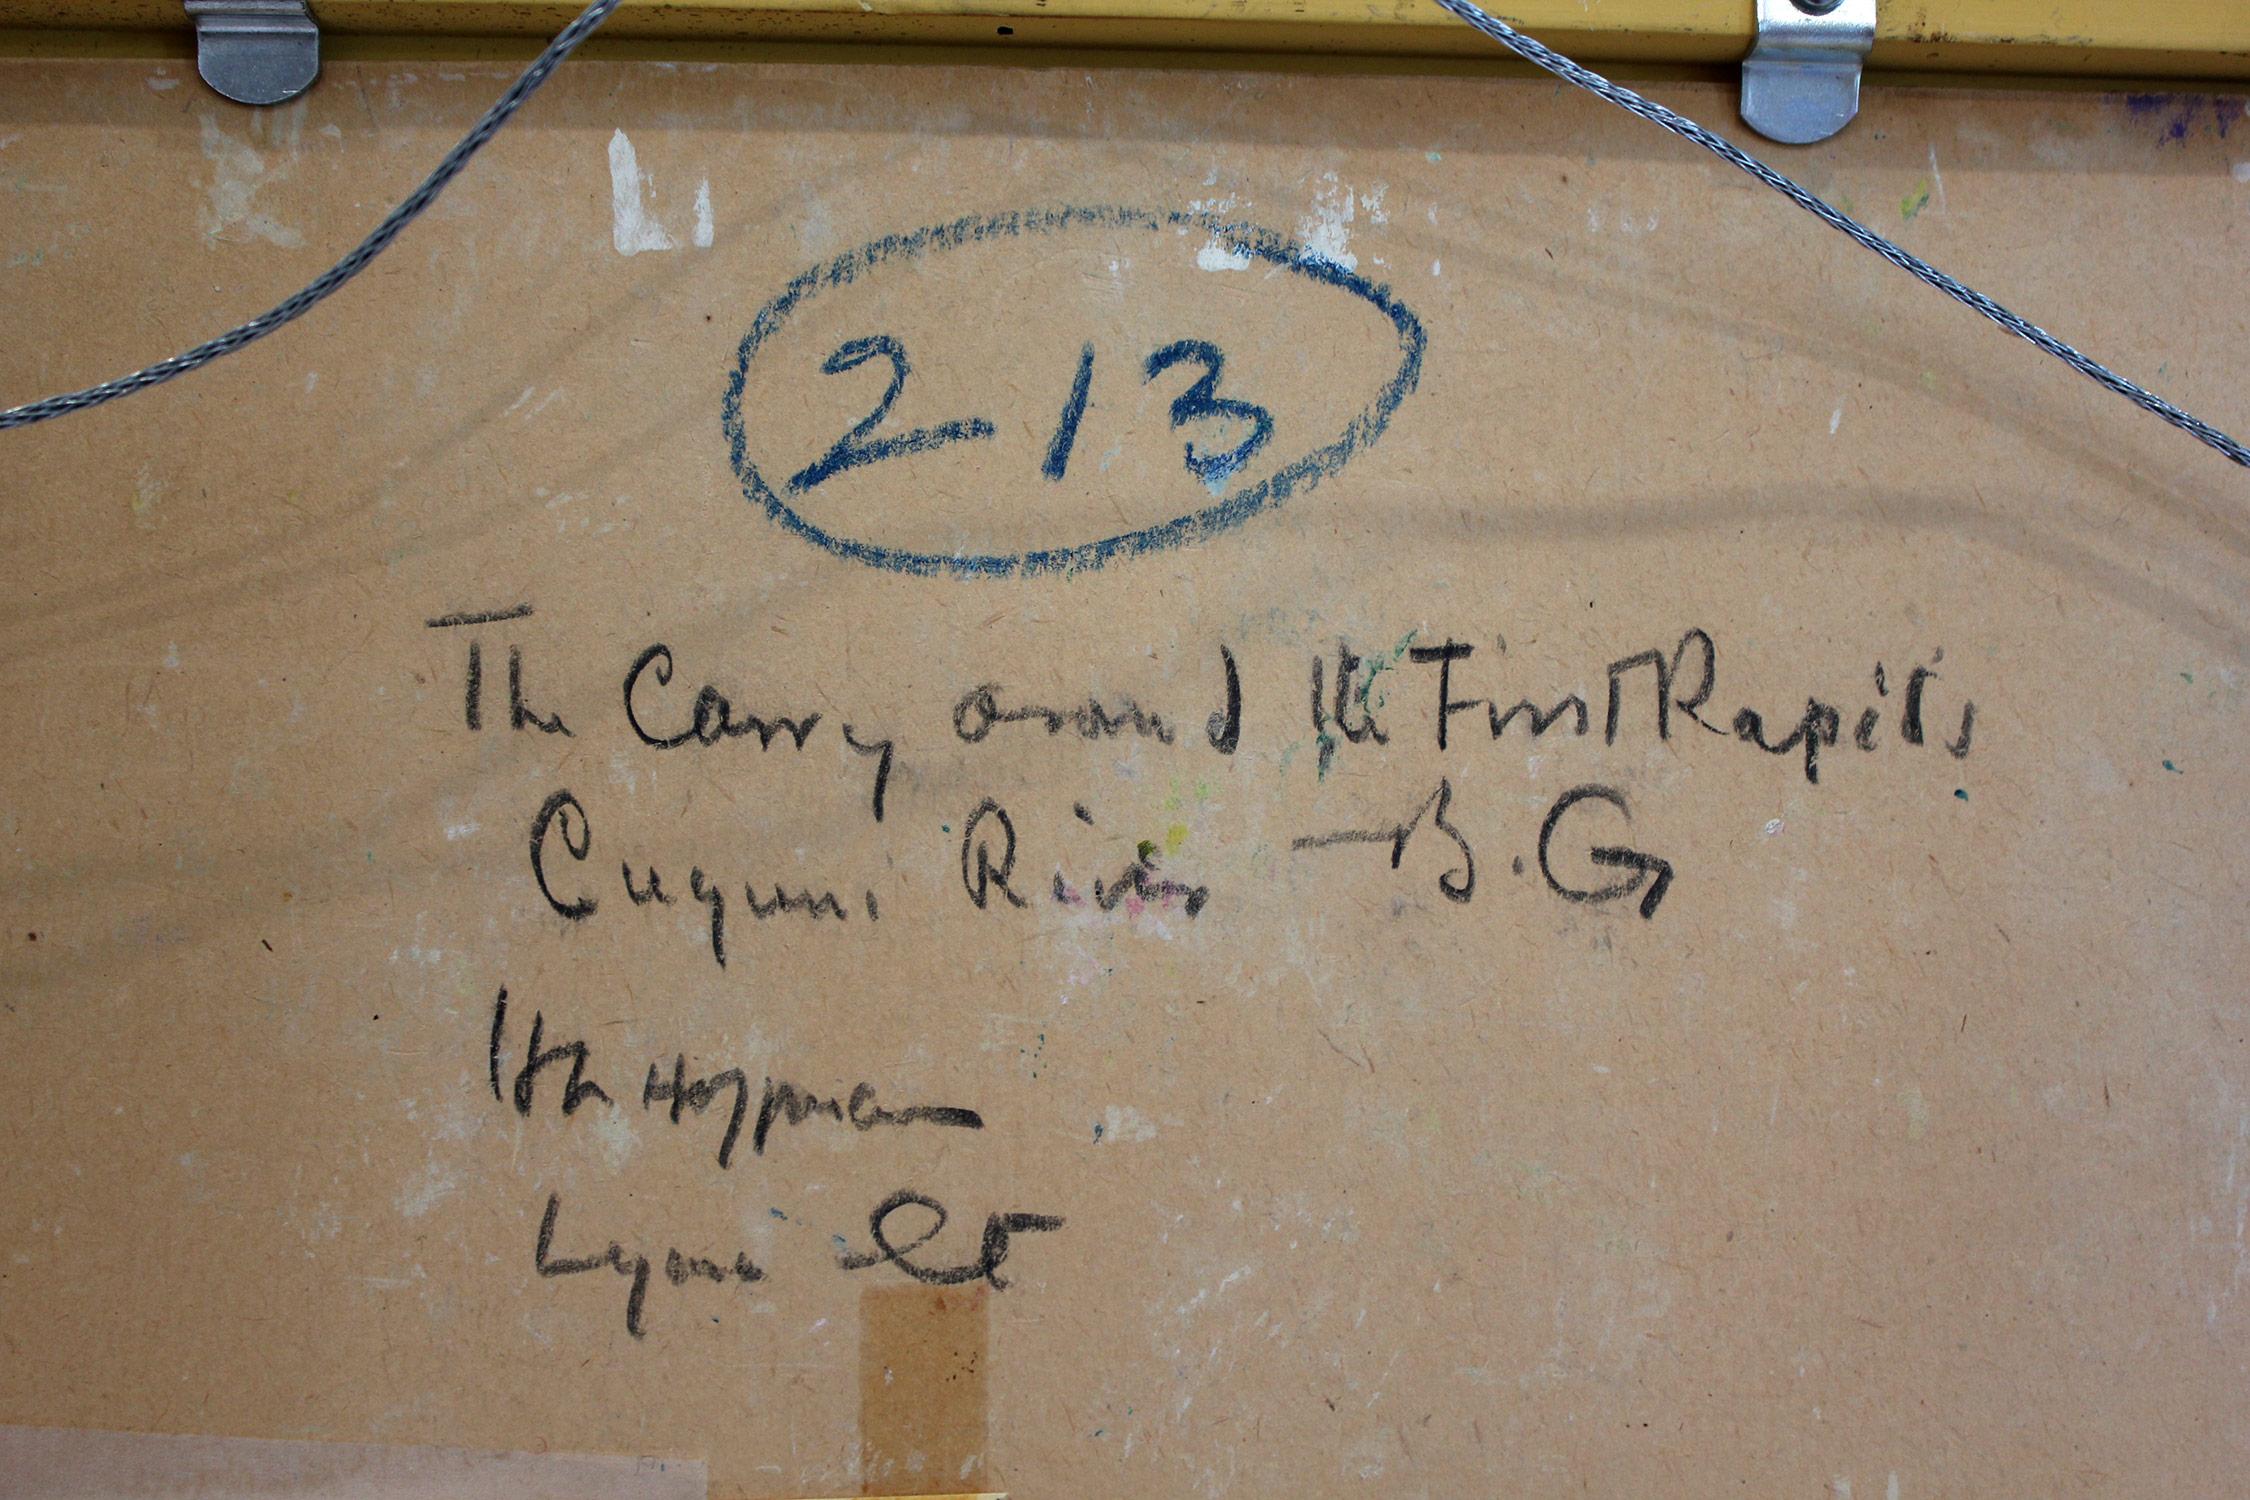 213
The Carry around the First Rapids
Cuyuni River - B.G
Hoffman
Lyme Ct